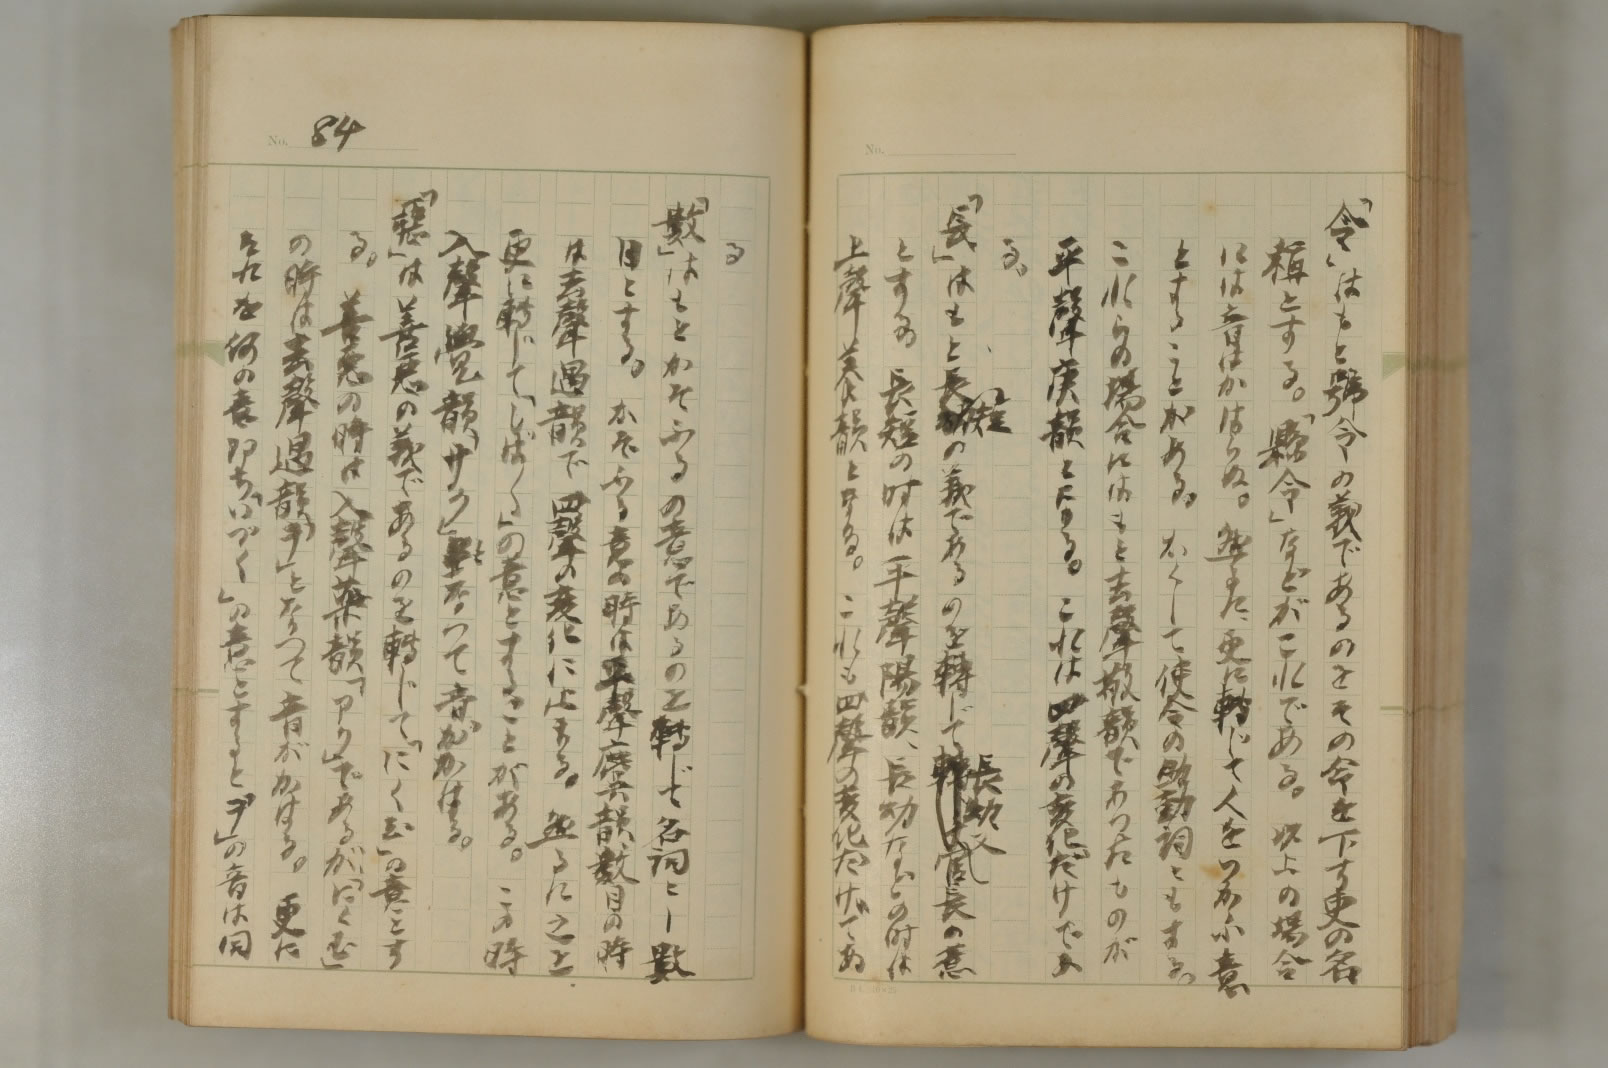 「令」はもと號令の義であるのをその令を下す吏の名
稱とする。「縣令」などがこれである。以上の場合
には音はかはらぬ。然るに更に轉じて人をつかふ意
とすることがある。かくして使令の助動詞ともする。
これらの場合にはもと去聲敬韻であつたものが
平聲庚韻となる。これは四聲の變化だけであ
る。
「長」はもと長短の義であるのを轉じて長幼又官長の意
とする。長短の時は平聲陽韻、長幼などの時は
上聲養韻となる。これも四聲の變化だけであ
No. 84
る
「數」はもとかぞふるの意であるのを轉じて名詞とし數
目とする。かぞふる意の時は平聲麌韻、數目の時
は去聲遇韻で四聲の變化に止まる。然るに之を
更に轉じて「しばしば」の意とすることがある。この時
入聲覺韻「サク」となつて音がかはる。
「惡」は善惡の義であるのを轉じて「にくむ」の意とす
る。善惡の時は入聲藥韻「アク」であるが、「にくむ」
の時は去聲遇韻「ヲ」となつて音がかはる。更に
之を何の意即ち「いづく」の意とすると「ヲ」の音は同